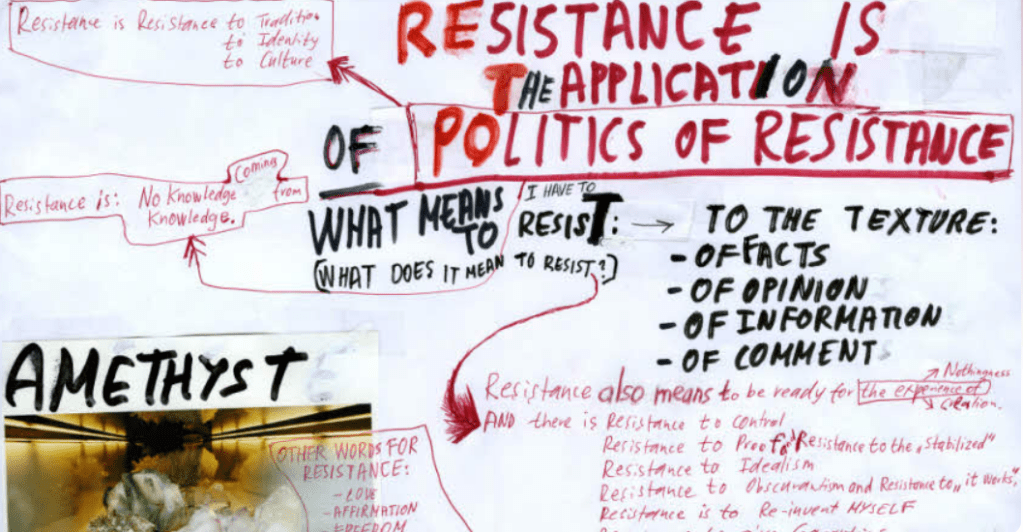 Resistance is Resistance to Tradition
to Identity
to Culture
RESISTANCE IS
THE APPLICATION
OF POLITICS OF RESISTANCE
Resistance is: No Knowledge coming from
Knowledge.
WHAT MEANS
TO
I HAVE TO
RESIST:
(WHAT DOES IT MEAN TO RESIST?)
→ TO THE TEXTURE:
- OF FACTS
- OF OPINION
- OF INFORMATION
- OF COMMENT
AMETHYST
OTHER WORDS FOR
RESISTANCE:
- LOVE
- AFFIRMATION
- FREEDOM
Nothingness
Resistance also means to be ready for the experience of
Creation.
AND there is Resistance to control
Resistance to Proof, Resistance to the „Stabilized"
Resistance to Idealism
Resistance to Obscurantism and Resistance to „it works",
Resistance is to Re-invent MYSELF